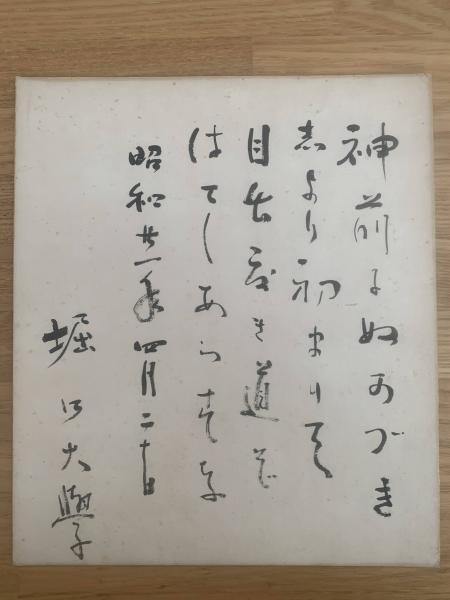 神前にぬかづき
しより初まりて
目出度き道ぞ
はてしあらすな
昭和廿一年四月二十日
堀口大學